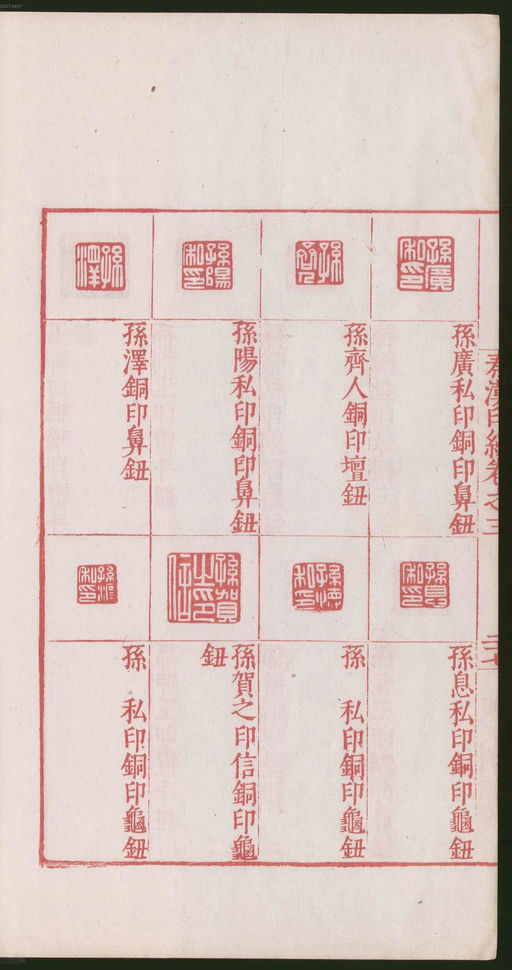 秦漢印統卷之三
二七
孫廣私印銅印鼻鈕
孫齊人銅印壇鈕
孫陽私印銅印鼻鈕
孫澤銅印鼻鈕
孫息私印銅印龜鈕
孫 私印銅印龜鈕
孫賀之印信銅印龜
鈕
孫 私印銅印龜鈕